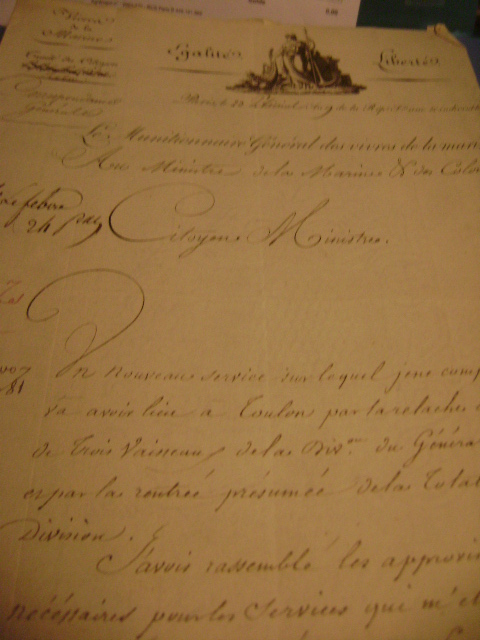 Vivres
de la
Marine
Correspondance
Générale
Egalité
Liberté
Paris, le
Le Munitionnaire Général des vivres de la mari
Au Ministre de la Marine & des Colon
Lefebvre
24
Citoyen Ministre.
Un nouveau service sur lequel je ne comp
va avoir lieu à Toulon par la relache
de Trois Vaisseaux de la Divon. du Généra
et par la rentrée présumée de la Total
Division.
J'avois rassemblé les approvi
nécéssaires pour les Services qui m'é